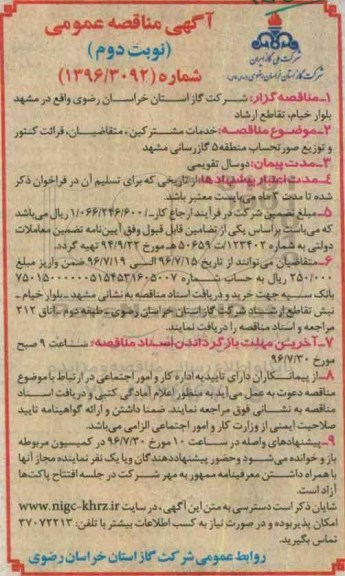 آگهی مناقصه عمومی
(نوبت دوم)
شماره (۱۳۹۶/۳۰۹۲)
شرکت ملی گاز ایران
شرکت گاز استان خراسان رضوی
۱-مناقصه گزار: شرکت گاز استان خراسان رضوی واقع در مشهد
بلوار خیام، تقاطع ارشاد
۲-موضوع مناقصه: خدمات مشترکین، متقاضیان، قرائت کنتور
و توزیع صورتحساب منطقه۵ گازرسانی مشهد
۳-مدت پیمان: دوسال تقویمی
٤-مدت اعتبار پیشنهاد ها: از تاریخی که برای تسلیم آن در فراخوان ذکر
شده تا مدت ۳ ماه می‌بایست معتبر باشد.
۵- مبلغ تضمین شرکت در فرآیند ارجاع کار ۱/۰۶۶/۲۴۶/۶۰۰ ریال می‌باشد
که می‌بایست براساس یکی از تضامین قابل قبول وفق آیین‌نامه تضمین معاملات
دولتی به شماره ۱۲۳۴۰۲/ت ۵۰۶۵۹ هـ مورخ ۹۴/۹/۲۲ تهیه گردد.
۶-متقاضیان می‌توانند از تاریخ ۹۶/۷/۱۵ الی ۹۶/۷/۱۹ ضمن واریز مبلغ
۲۵۰/۰۰۰ ریال به حساب شماره
بانک سپه جهت خرید و دریافت اسناد مناقصه به نشانی مشهد-بلوار خیام-
نبش تقاطع ارشاد شرکت گاز استان خراسان رضوی-طبقه دوم-اتاق ۲۱۲
مراجعه و اسناد مناقصه را دریافت نمایند.
۷-آخرین مهلت بازگرداندن اسناد مناقصه: ساعت ۹ صبح
مورخ ۹۶/۷/۳۰
۸-از پیمانکاران دارای تاییدیه اداره کار و امور اجتماعی در ارتباط با موضوع
مناقصه دعوت به عمل می‌آید به منظور اعلام آمادگی کتبی و دریافت اسناد
مناقصه به نشانی فوق مراجعه نمایند. ضمنا داشتن و ارائه گواهینامه تایید
صلاحیت ایمنی از وزارت کار و امور اجتماعی الزامی می‌باشد.
۹-پیشنهادهای واصله در ساعت ۱۰ مورخ ۹۶/۷/۳۰ در کمیسیون مربوطه
باز و خوانده می‌شود و حضور پیشنهاددهندگان و یا یک نفر نماینده مجاز آنها
با همراه داشتن معرفینامه ممهور به مهر شرکت در جلسه افتتاح پاکت‌ها
آزاد است.
شایان ذکر است دسترسی به متن این آگهی، در سایت www.nigc-khrz.ir
امکان پذیر بوده و در صورت نیاز به کسب اطلاعات بیشتر با تلفن: ۳۷۰۷۲۲۱۳
تماس بگیرید.
روابط عمومی شرکت گاز استان خراسان رضوی